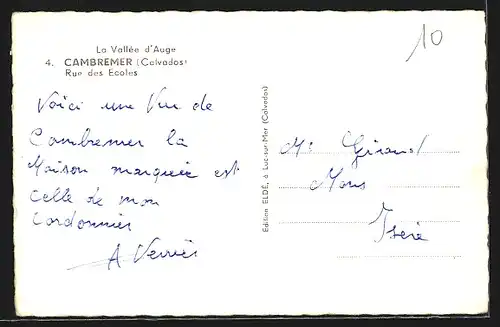 La Vallée d'Auge
4. CAMBREMER (Calvados)
Rue des Ecoles
10
Voici une Vue de
Cambremer la
Maison marquée est
celle de mon
Cordonnier
A Verrier
Edition ELDÉ, à Luc-sur-Mer (Calvados)
Mr Giraud
Mens
Isère